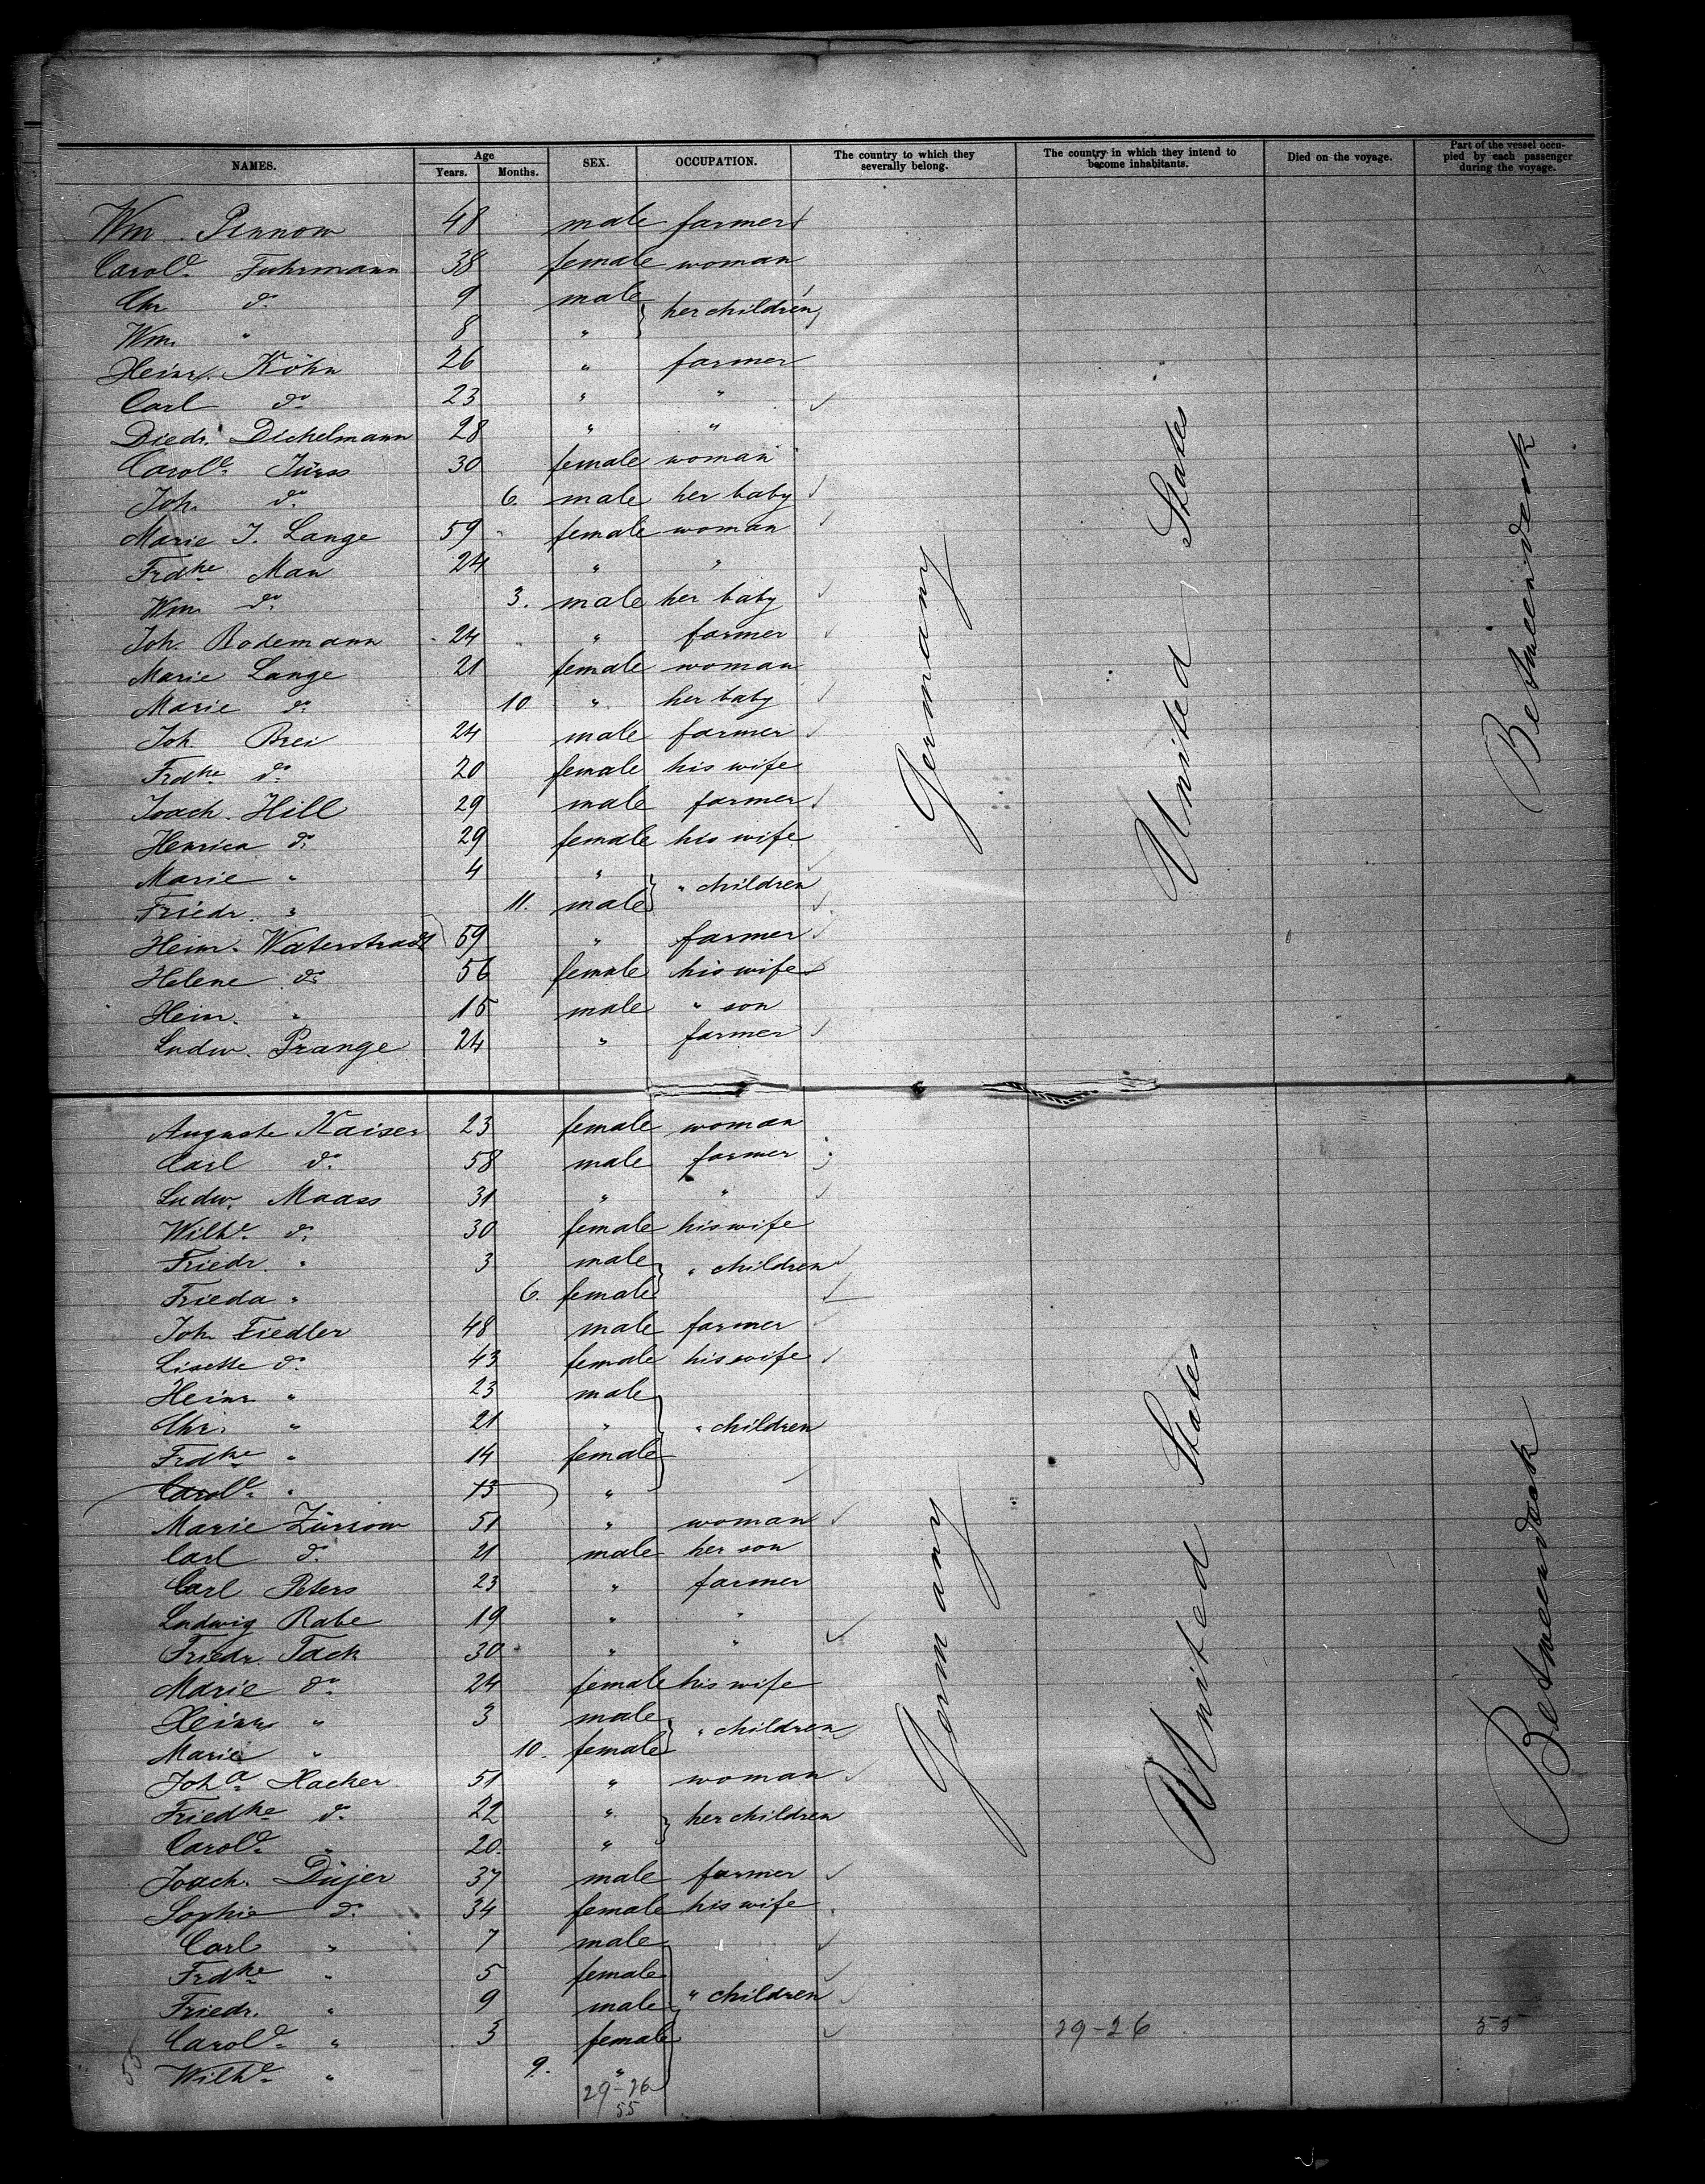 NAMES. Age Years. Months. SEX. OCCUPATION. The country to which they severally belong. The country in which they intend to become inhabitants. Died on the voyage. Part of the vessel occupied by each passenger during the voyage.
Wm. Pinnow 48 male farmer
Carol.e Fuhrmann 38 female woman
Chr. do 9 male her children
Wm. " 8 "
Heinr. Köhn 26 " farmer
Carl do 23 " "
Diedr. Dickelmann 28 " "
Carol.e Jürss 30 female woman
Joh. do 6. male her baby
Marie J. Lange 59 female woman
Frdke Man 24 " "
Wm. do 3. male her baby
Joh. Rodemann 24 " farmer
Marie Lange 21 female woman
Marie do 10 " her baby
Joh. Brei 24 male farmer
Frdke do 20 female his wife
Joach. Hill 29 male farmer
Henrica do 29 female his wife
Marie " 4 " " children
Friedr. " 11. male
Heinr. Waterstradt 59 " farmer
Helene do 56 female his wife
Heinr. " 15 male " son
Ludw. Prange 24 " farmer
Germany United States Betweendeck
Auguste Kaiser 23 female woman
Carl do 58 male farmer
Ludw. Maass 31 " "
Wilh.e do 30 female his wife
Friedr. " 3 male " children
Frieda " 6. female
Joh. Fiedler 48 male farmer
Lisette do 43 female his wife
Heinr. " 23 male
Chr. " 21 " " children
Frdke " 14 female
Carol.e " 13 "
Marie Zürsow 51 " woman
Carl do 21 male her son
Carl Peters 23 " farmer
Ludwig Rabe 19 " "
Friedr. Tack 30 " "
Marie do 24 female his wife
Heinr. " 3 male " children
Marie " 10. female
Joh.a Hacker 51 " woman
Friedke do 22 " her children
Carol.e " 20 "
Joach. Düjer 37 male farmer
Sophie do 34 female his wife
Carl " 7 male
Frdke " 5 female
Friedr. " 9 male " children
Carol.e " 3 female
Wilh.e " 9. "
Germany United States Betweendeck
29-26 55
55
29-26
55